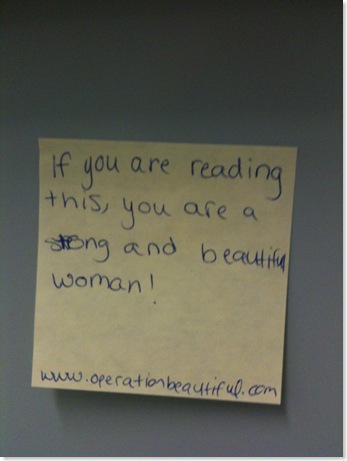 If you are reading
this, you are a
strong and beautiful
woman!
www.operationbeautiful.com